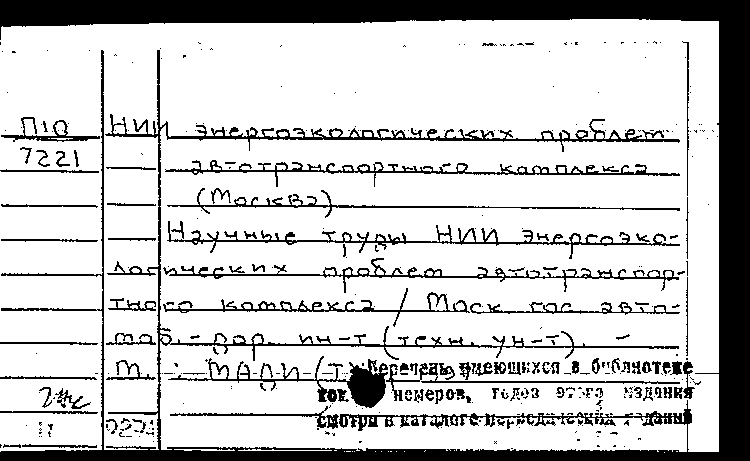 П10 НИИ энергоэкологических проблем
7221 автотранспортного комплекса
(Москва)
Научные труды НИИ энергоэко-
логических проблем автотранспор-
тного комплекса / Моск гос авто-
моб.-дор. ин-т (техн. ун-т). -
М. : МАДИ (Т
Перечень имеющихся в библиотеке
номеров, годов этого издания
смотри в каталоге периодических изданий